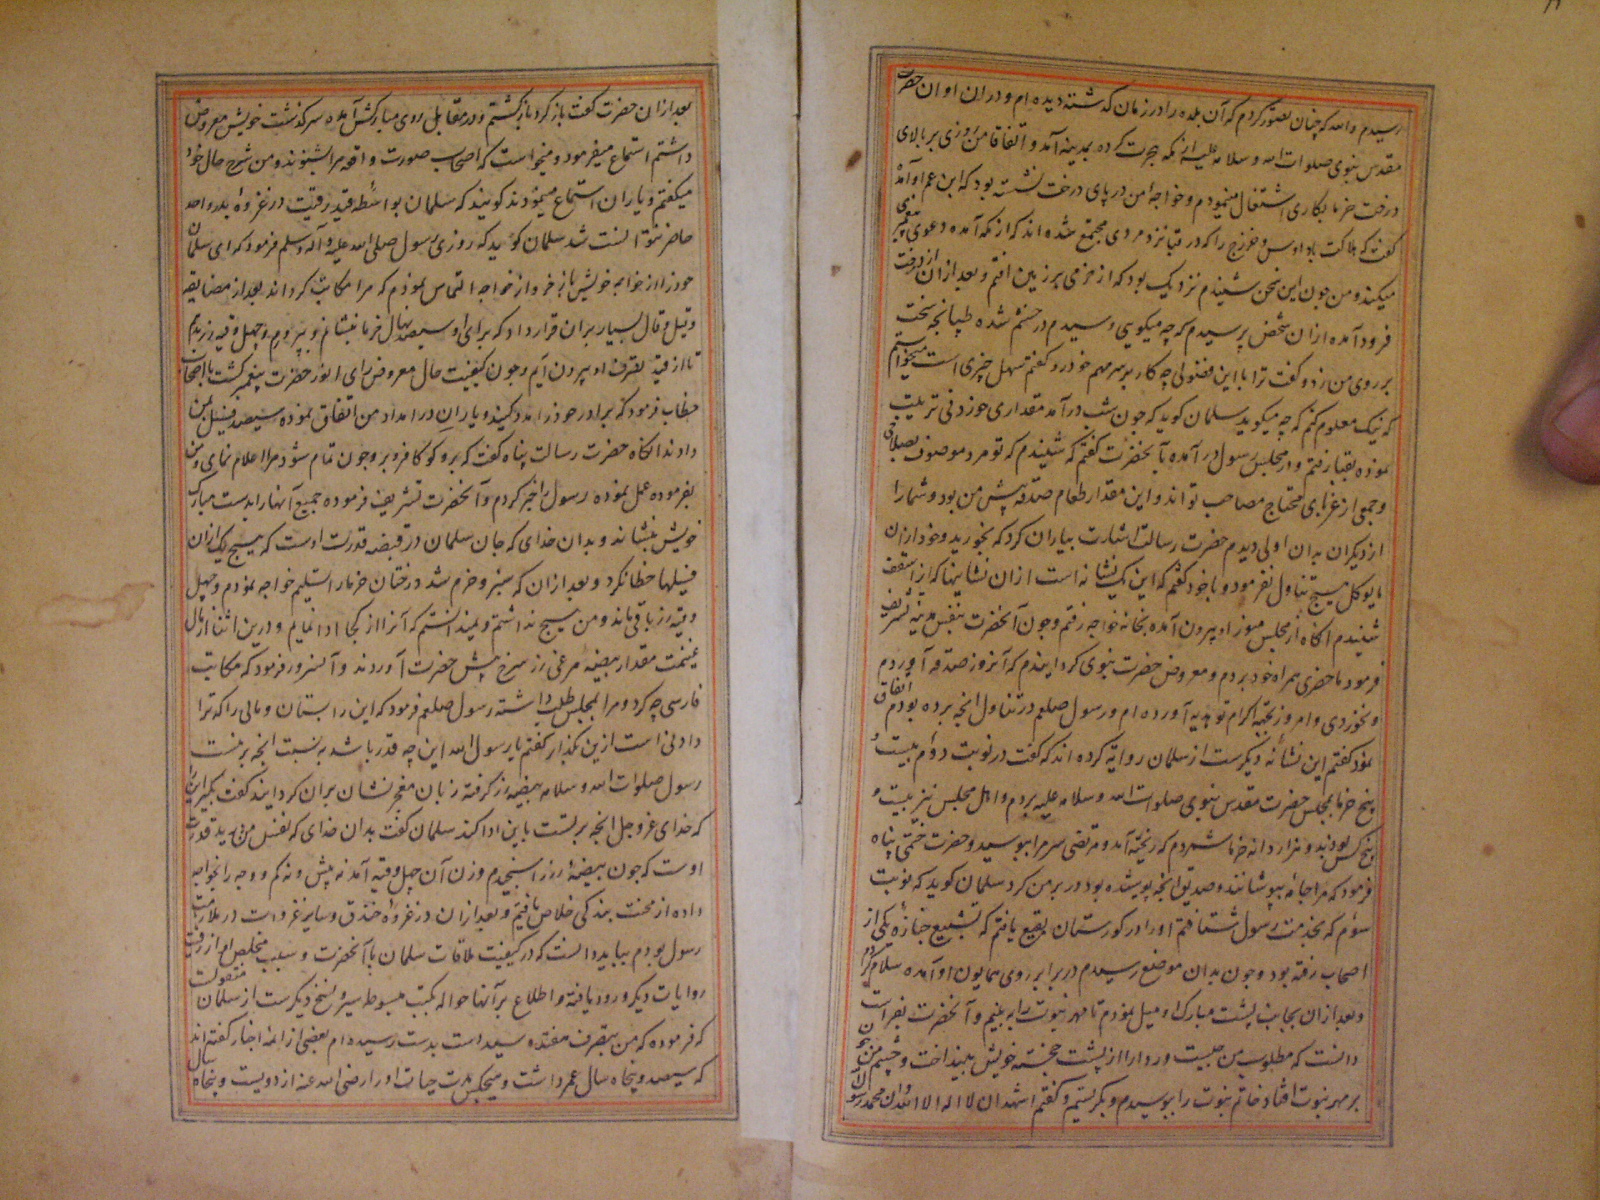 رسیدم والله که چنان تصور کردم که آن بلده را در زمان گذشته دیده ام و در ان اوان حضرت
مقدس نبوی صلوات الله وسلامه علیه از مکه هجرت کرده بمدینه آمد و اتفاقا من روزی بر بالای
درخت خرما بکاری اشتغال مینمودم و خواجه من در پای درخت نشسته بود که ابن عم او آمد
گفت که هلاکت باد اوس و خزرج را که در قبا نزد مردی مجتمع شده اند که از مکه آمده دعوی پیغمبری
میکند و من چون این سخن شنیدم نزدیک بود که از خرمی بر زمین افتم و بعد ازان از درخت
فرود آمده ازان شخص پرسیدم که چه میکویی و سیدم در خشم شده طپانچه سخت
بر روی من زد و گفت ترا با این فضولی چه کار برو سر مهم خود رو گفتم سهل چیزی است میخواستم
که نیک معلوم کنم که چه میکوید سلمان کوید که چون شب در آمد مقداری خوردنی ترتیب
نموده بقبا رفتم و در مجلس رسول در آمده با آنحضرت گفتم که شنیدم که تو مرد موصوف بصلاحی
و جمعی از غربای محتاج مصاحب تواند و این مقدار طعام صدقه پیش من بود و شما را
از دیگران بدان اولی دیدم حضرت رسالت اشارت بیاران کرد که بخورید و خود ازان
مایوکل هیچ تناول نفرمود و با خود گفتم که این یک نشانه است ازان نشانیها که از اسقف
شنیدم انکاه از مجلس بیرون آمده بخانه خواجه رفتم و چون آنحضرت بنفس مدینه تشریف
فرمود ما حضری همراه خود بردم و معروض حضرت نبوی کردانیدم که آنروز صدقه آوردم
و نخوردی و امروز بجهة اکرام تو هدیه آورده ام و رسول صلعم در تناول انچه برده بودم اتفاق
نمود گفتم این نشانه دیکرست از سلمان روایة کرده اند که گفت در نوبت دوم بیست و
پنج خرما بمجلس حضرت مقدس نبوی صلوات الله وسلامه علیه بردم و اهل مجلس نیز بیست و
پنج کس بودند و هزار دانه خرما شمردم که ریخته آمد و مرتضی سر مرا ببوسید و حضرت ختمی پناه
فرمود که مرا جامه بپوشانند و صدیق انچه پوشیده بود در بر من کرد سلمان کوید که نوبت
سوم که بخدمت رسول شتافتم او را در کورستان بقیع یافتم که بتشییع جنازه یکی از
اصحاب رفته بود و چون بدان موضع رسیدم در برابر روی همایون او آمده سلام کردم
و بعد ازان بجانب پشت مبارک او میل نمودم تا مهر نبوت را ببینم و آنحضرت بفراست
دانست که مطلوب من چیست و ردا را از پشت خجسته خویش بیانداخت و چشم من
بر مهر نبوت افتاد خاتم نبوت را ببوسیدم و بکریستم و گفتم اشهد ان لا اله الا الله و ان محمد رسول الله
بعد ازان حضرت گفت باز کرد باز کشتم و در مقابل روی مبارکش آمده سرکذشت خویش معروض
داشتم استماع میفرمود و میخواست که اصحاب صورت واقعه مرا بشنوند و من شرح حال خود
میکفتم و یاران استماع مینمودند کویند که سلمان بواسطه قید رقیت در غزوه بدر و احد
حاضر نتوانست شد سلمان کوید که روزی رسول صلی الله علیه و آله وسلم فرمود که ای سلمان
خود را از خواجه خویش باز خر و از خواجه التماس نمودم که مرا مکاتب کرداند بعد از مضایقه
و قیل و قال بسیار بران قرار داد که برای او سیصد نهال خرما بنشانم و بپرورم و چهل وقیه زر بدهم
تا از قید تصرف او بیرون آیم و چون کیفیت حال معروض رای انور حضرت پیغمبر کشت با اصحاب
خطاب فرمود که برادر خود را مدد کنید و یاران در امداد من اتفاق نموده سیصد فسیل بمن
دادند انکاه حضرت رسالت پناه گفت که برو کو کافرو بر و چون تمام شود مرا اعلام نمای و من
بفرموده عمل نموده رسول را خبر کردم و آنحضرت تشریف فرموده جمیع آنها را بدست مبارک
خویش بنشاند و بدان خدای که جان سلمان در قبضه قدرت اوست که هیچ یک ازان
فسیلها خطا نکرد و بعد ازان که سبز و خرم شد درختان خرما را تسلیم خواجه نمودم و چهل
وقیه زر باقی ماند و من هیچ نداشتم و نمیدانستم که آنرا از کجا ادا نمایم و درین اثنا از مال
غنیمت مقدار بیضه مرغی زر سرخ پیش حضرت آوردند و آنسرور فرمود که مکاتب
فارسی چه کرد و مرا بمجلس طلب داشته رسول صلعم فرمود که این را بستان و مالی را که ترا
دادنی است ازین بکذار گفتم یا رسول الله این چه قدر باشد به نسبت انچه بر منست
رسول صلوات الله وسلامه بیضه زر گرفته زبان معجز نشان بران کردانید گفت بکیر این را
که خدای عز و جل انچه بر تست باین ادا کند سلمان گفت بدان خدای که نفس من بید قدرت
اوست که چون بیضه زر را سنجیدم وزن آن چهل وقیه آمد نه بیش و نه کم و وجه را بخواجه
داده از محنت بندگی خلاص یافتم و بعد ازان در غزوه خندق و سایر غزوات در ملازمت
رسول بودم بباید دانست که در کیفیت ملاقات سلمان با آنحضرت و سبب مخلص او از رقیت
روایات دیکر ورود یافته و اطلاع بر آنها حواله بکتب مبسوط سیر و نسخ دیکرست از سلمان منقولست
که فرموده که من بتصرف هفده سید است بدست رسیده ام بعضی از ائمه اخبار کفته اند
که سیصد و پنجاه سال عمر داشت و هیچکس مدت حیات او را رضی الله عنه از دویست و پنجاه سال